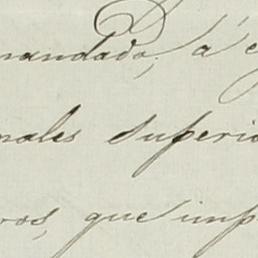 mandado, á e
nales superio
ros, que imp